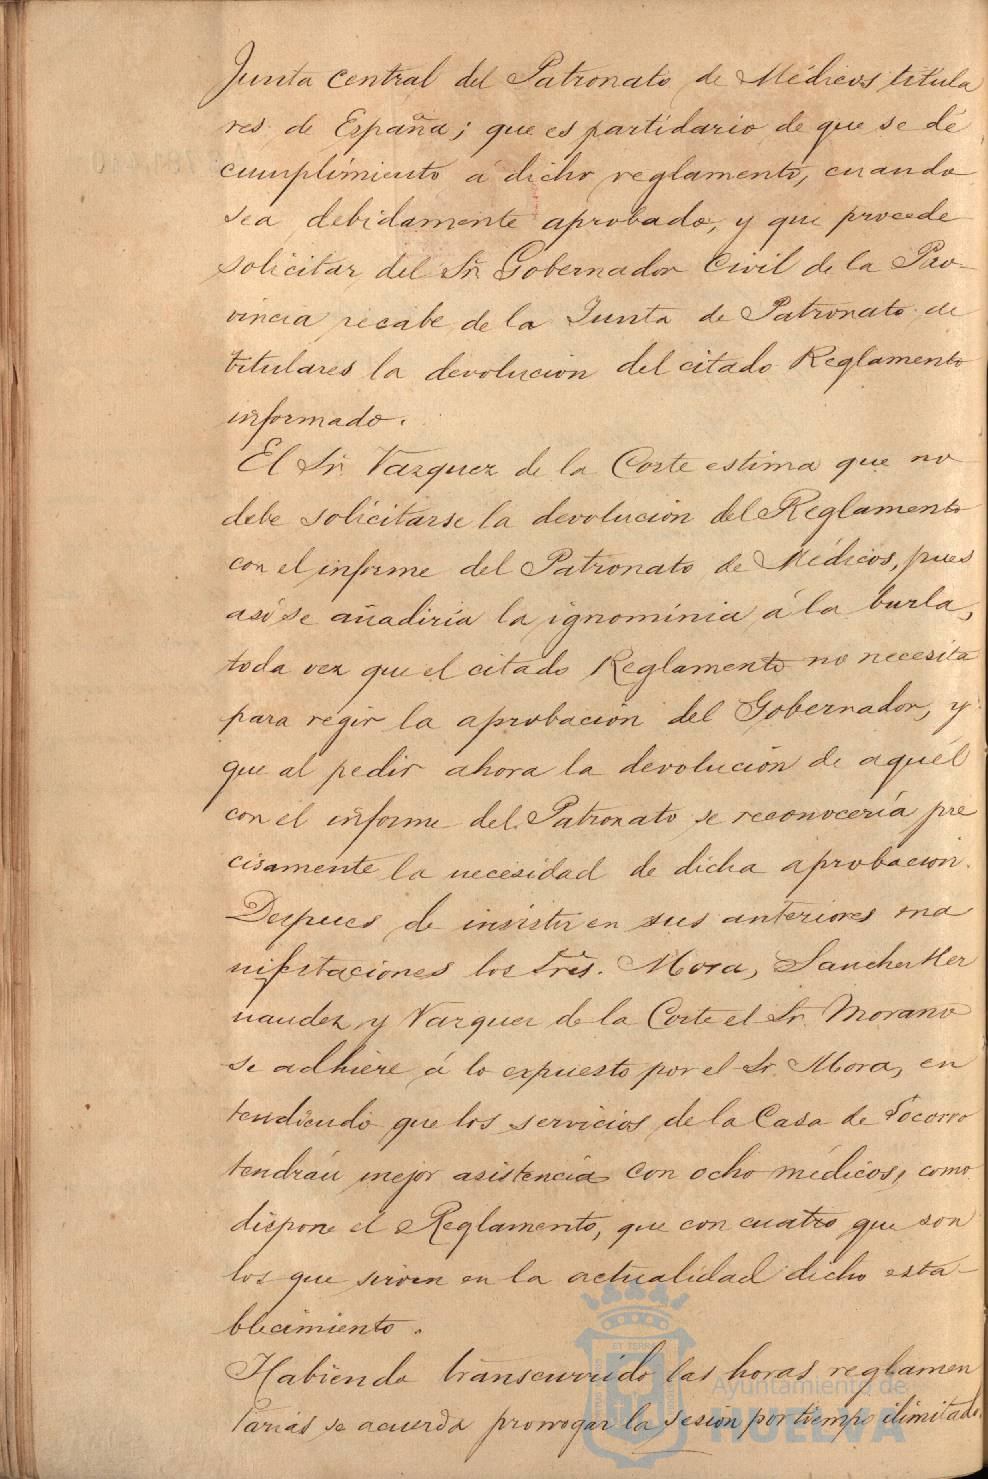 Junta Central del Patronato de Médicos titula
res de España; que es partidario de que se dé
cumplimiento á dicho reglamento, cuando
sea debidamente aprobado, y que procede
solicitar del Sr. Gobernador Civil de la Pro-
vincia recabe de la Junta de Patronato de
titulares la devolucion del citado Reglamento
informado.
El Sr. Vazquez de la Corte estima que no
debe solicitarse la devolucion del Reglamento
con el informe del Patronato de Médicos, pues
así se añadiría la ignominia á la burla,
toda vez que el citado Reglamento no necesita
para regir la aprobación del Gobernador, y
que al pedir ahora la devolución de aquél
con el informe del Patronato se reconocería pre
cisamente la necesidad de dicha aprobacion.
Despues de insistir en sus anteriores ma
nifestaciones los Sres. Mora, Sanchez Her
nandez y Vazquez de la Corte el Sr. Morano
se adhiere á lo expuesto por el Sr. Mora, en
tendiendo que los servicios de la Casa de Socorro
tendrán mejor asistencia con ocho médicos, como
dispone el Reglamento, que con cuatro que son
los que sirven en la actualidad dicho esta-
blecimiento.
Habiendo transcurrido las horas reglamen
tarias se acuerda prorrogar la sesion por tiempo ilimitado.
Ayuntamiento de
HUELVA